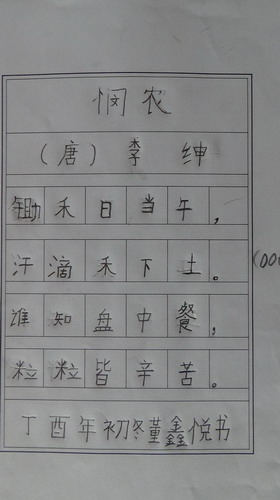 悯农
（唐）李绅
锄禾日当午，
汗滴禾下土。
谁知盘中餐，
粒粒皆辛苦。
丁酉年初冬董鑫悦书